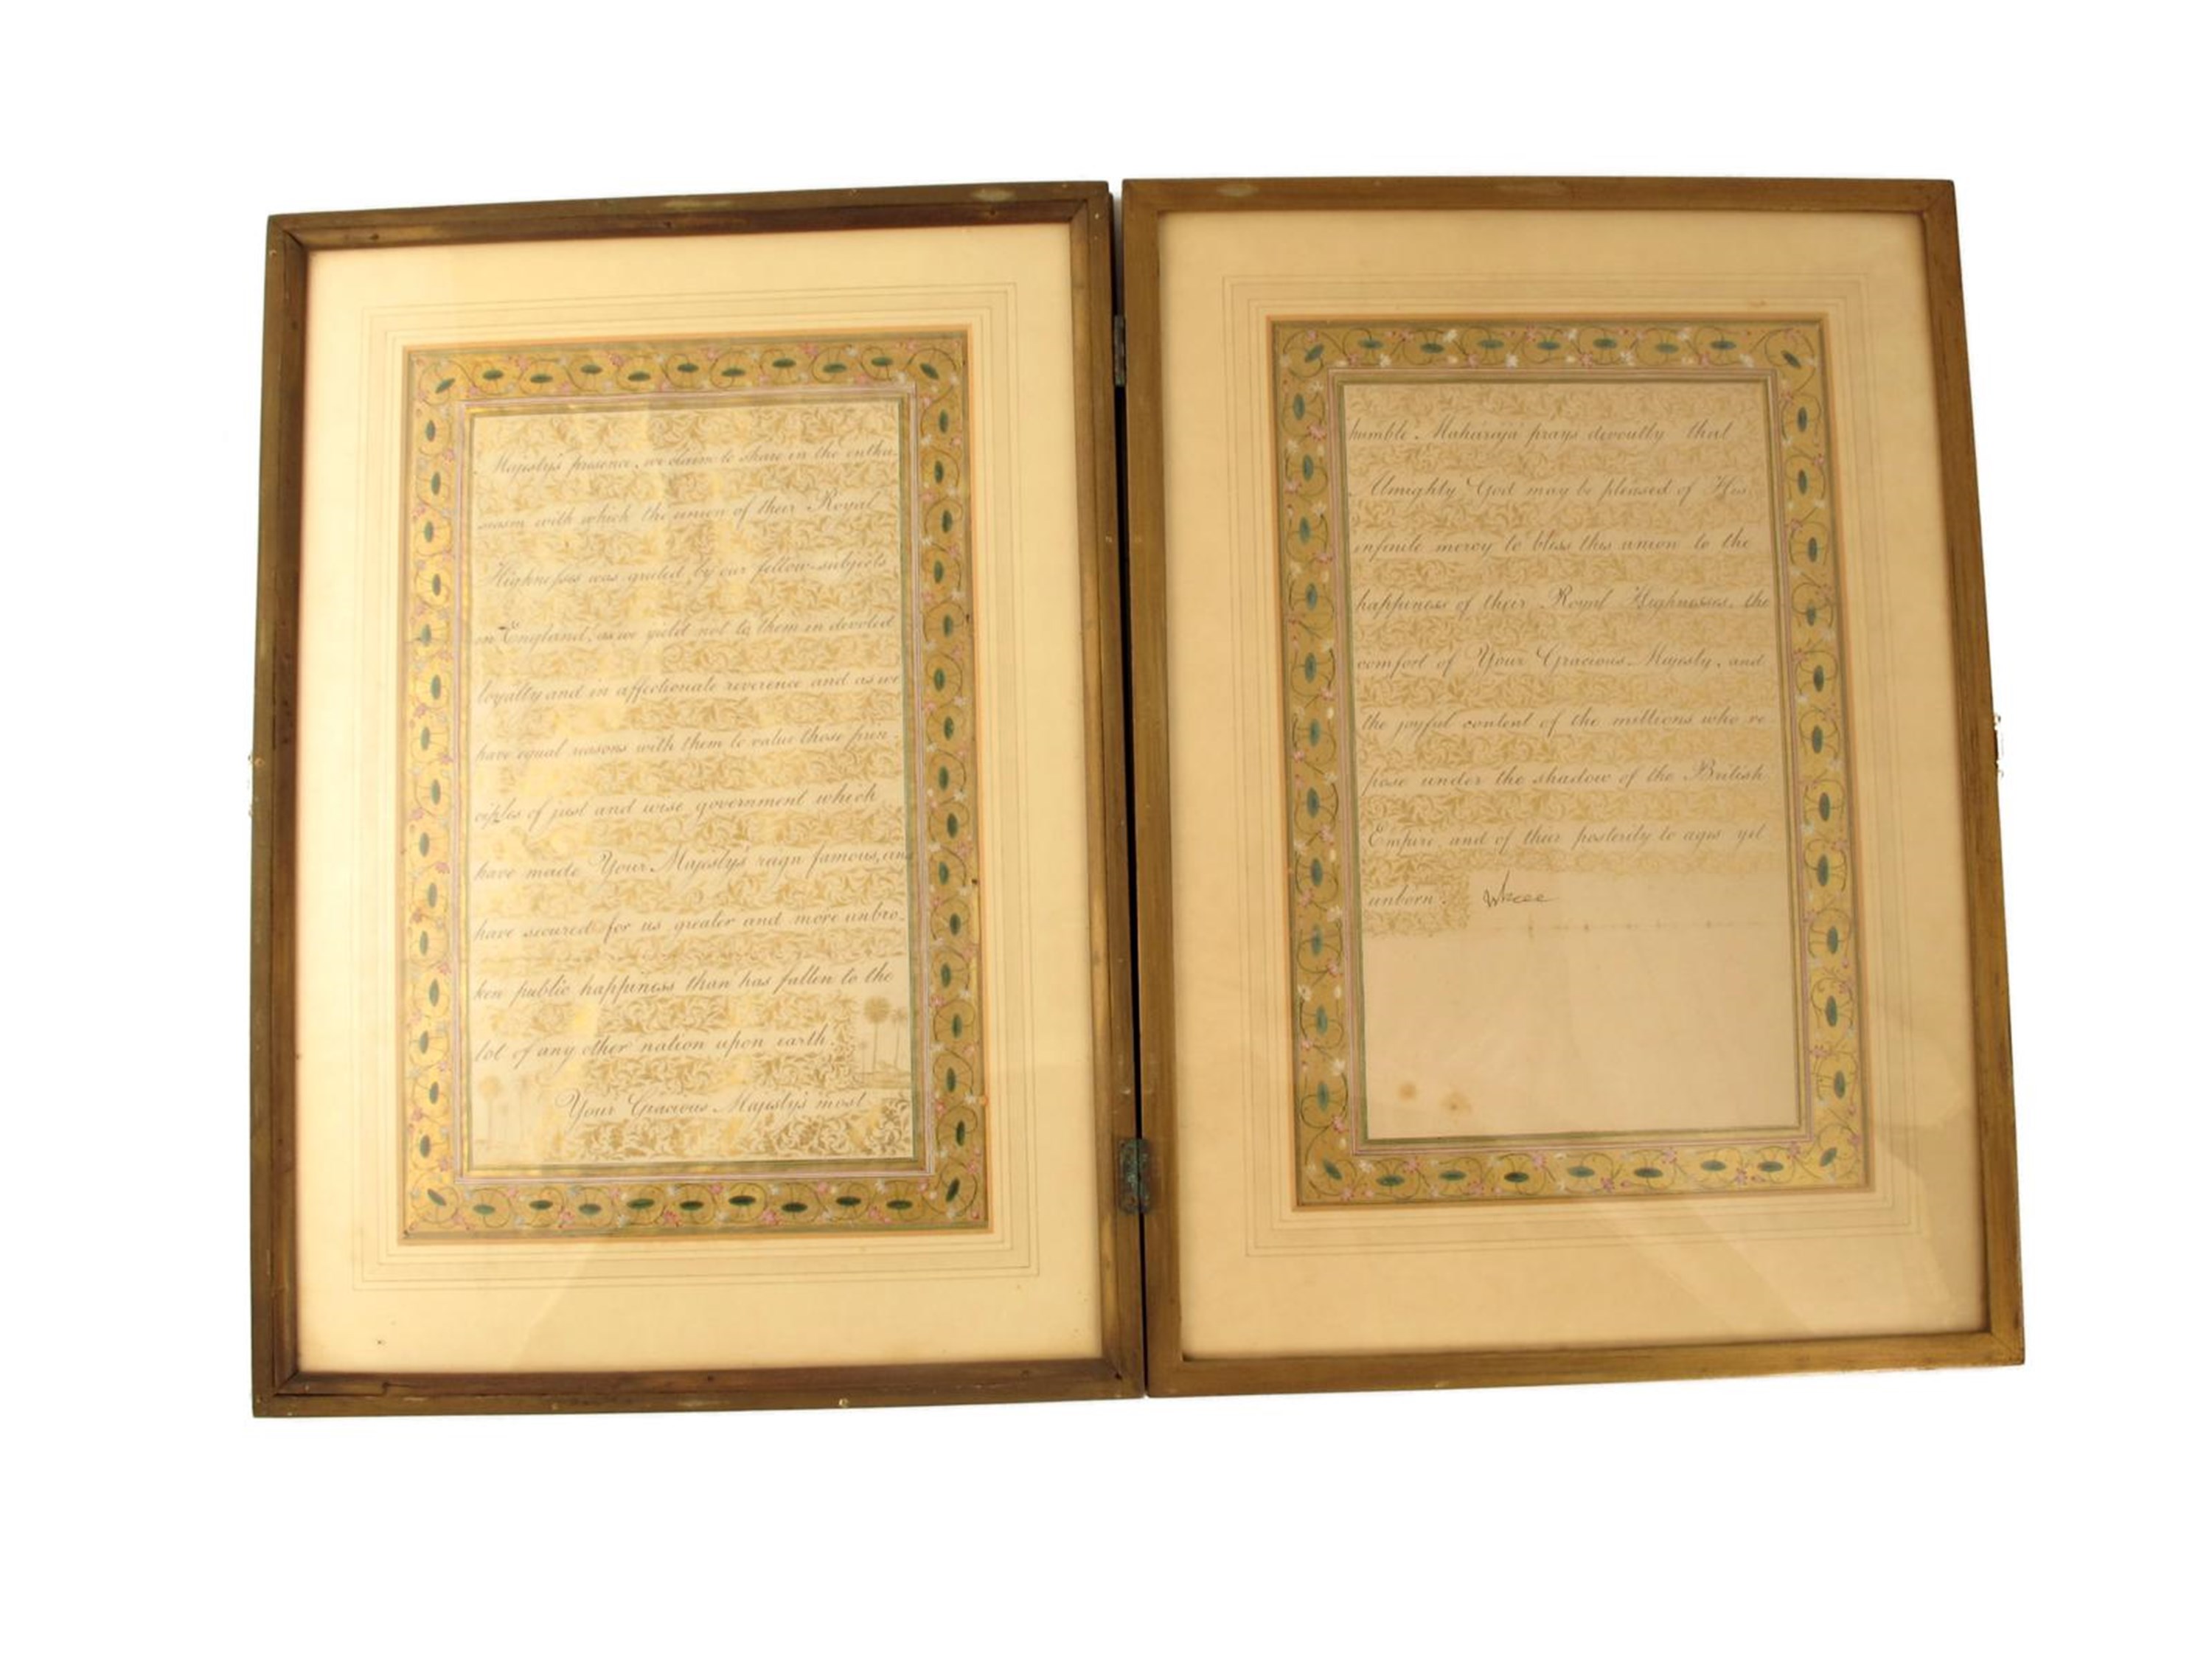 Majesty's presence, we claim to share in the enthu-
siasm with which the union of their Royal
Highnesses was greeted by our fellow-subjects
in England, as we yield not to them in devoted
loyalty and in affectionate reverence and as we
have equal reasons with them to value those prin-
ciples of just and wise government which
have made Your Majesty's reign famous, and
have secured for us greater and more unbro-
ken public happiness than has fallen to the
lot of any other nation upon earth.
Your Gracious Majesty's most
humble Maharaja prays devoutly that
Almighty God may be pleased of His
infinite mercy to bless this union to the
happiness of their Royal Highnesses, the
comfort of Your Gracious Majesty, and
the joyful content of the millions who re-
pose under the shadow of the British
Empire, and of their posterity to ages yet
unborn.